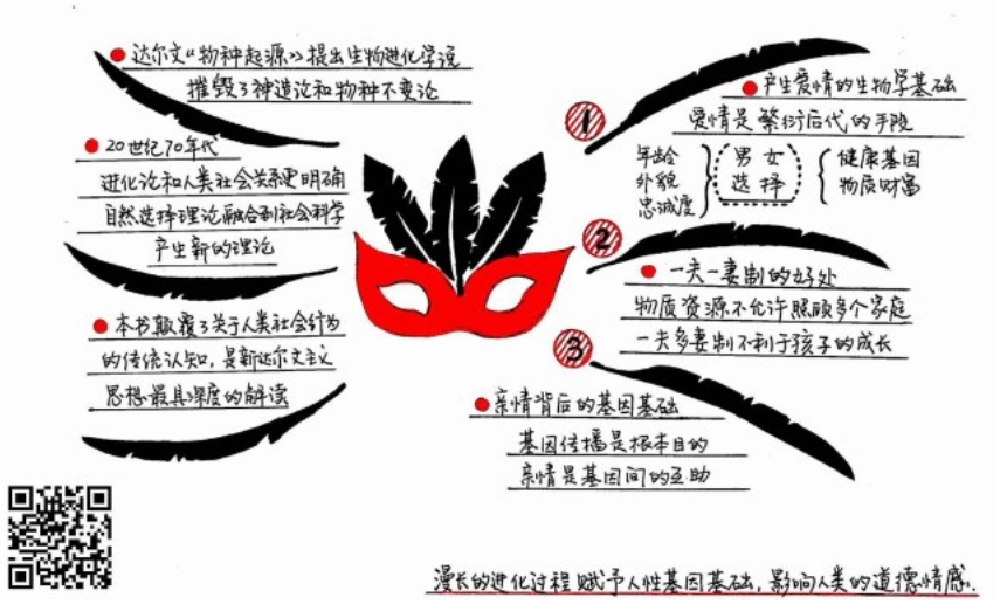 达尔文《物种起源》提出生物进化学说
摧毁了神造论和物种不变论
20世纪70年代
进化论和人类社会关系更明确
自然选择理论融合到社会科学
产生新的理论
本书颠覆了关于人类社会行为
的传统认知,是新达尔文主义
思想最具深度的解读
1
产生爱情的生物学基础
爱情是繁衍后代的手段
年龄
外貌
忠诚度
男女
选择
健康基因
物质财富
2
一夫一妻制的好处
物质资源不允许照顾多个家庭
一夫多妻制不利于孩子的成长
3
亲情背后的基因基础
基因传播是根本目的
亲情是基因间的互助
漫长的进化过程赋予人性基因基础,影响人类的道德情感.